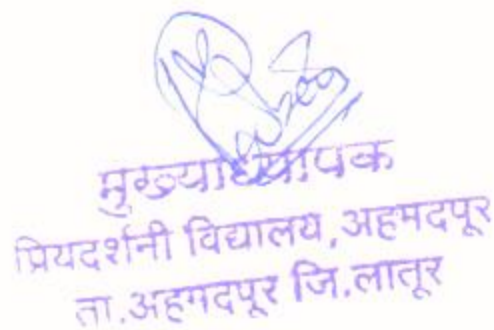 मुख्याध्यापक
प्रियदर्शनी विद्यालय, अहमदपूर
ता.अहमदपूर जि.लातूर